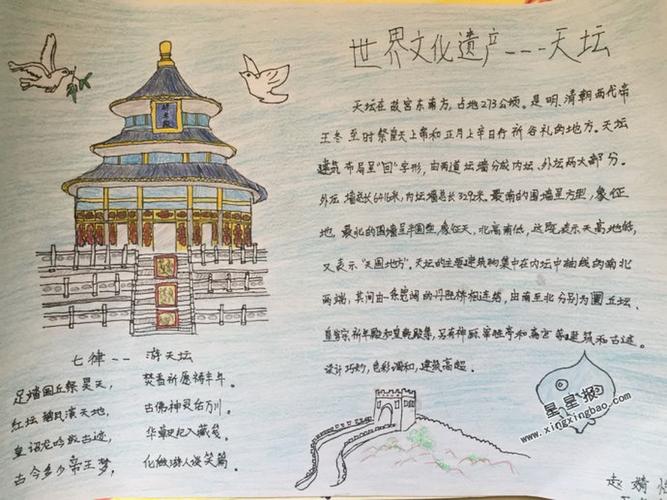 世界文化遗产---天坛
天坛在故宫东南方，占地273公顷。是明、清朝两代帝
王冬至时祭皇天上帝和正月上辛日行祈谷礼的地方。天坛
建筑布局呈"回"字形，由两道坛墙分成内坛、外坛两大部分。
外坛墙总长6416米，内坛墙总长3292米。最南的围墙呈方型，象征
地，最北的围墙呈半圆型，象征天，北高南低，这既表示天高地低，
又表示"天圆地方"。天坛的主要建筑物集中在内坛中轴线的南北
两端，其间由一条宽阔的丹陛桥相连结，由南至北分别为圜丘坛、
皇穹宇祈年殿和皇乾殿等，另有神厨宰牲亭和斋宫等建筑和古迹。
设计巧妙，色彩调和，建筑高超。
七律--游天坛
足踏圜丘祭昊天， 焚香祈愿祷丰年。
红坛 天地， 古佛神灵 川。
皇 龙吟 古迹， 华 入藏 。
古今多少帝王梦， 化做游人谈笑篇。
星星报
www.xingxingbao.com
赵